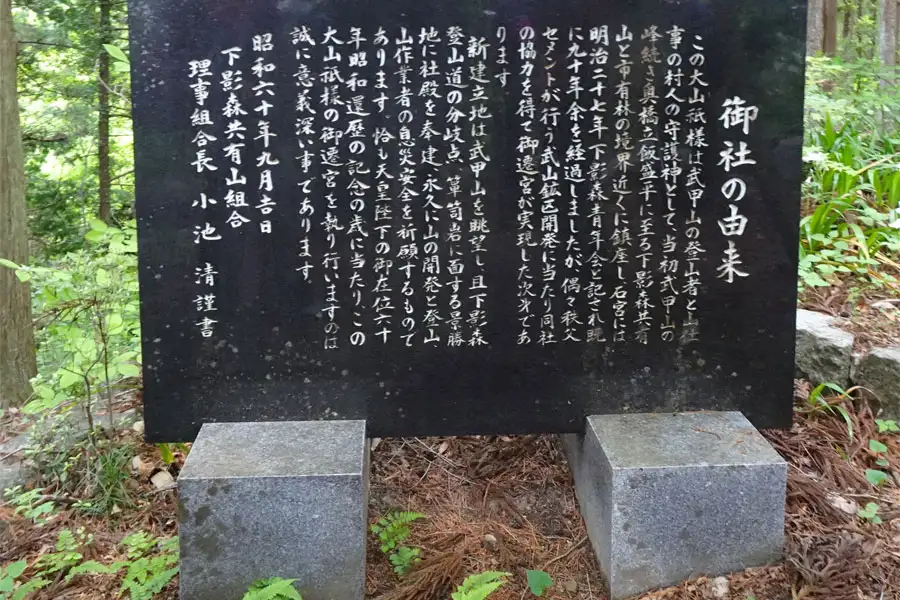 御社の由来
この大山祇様は武甲山の登山者と山仕
事の村人の守護神として、当初武甲山の
峰続き奥橋立飯盛平に至る下影森共有
山と市有林の境界近くに鎮座し石宮には
明治二十七年下影森青年会と記され既
に九十年余を経過しましたが、偶々秩父
セメントが行う武山鉱区開発に当たり同社
の協力を得て御遷宮が実現した次第であ
ります
新建立地は武甲山を眺望し且下影森
登山道の分岐点、簞笥岩に面する景勝
地に社殿を奉建、永久に山の開発と登山、
山作業者の息災安全を祈願するもので
あります。恰も天皇陛下の御在位六十
年昭和還暦の記念の歳に当たり、この
大山祇様の御遷宮を執り行いますのは
誠に意義深い事であります。
昭和六十年九月吉日
下影森共有山組合
理事組合長 小池 清謹書